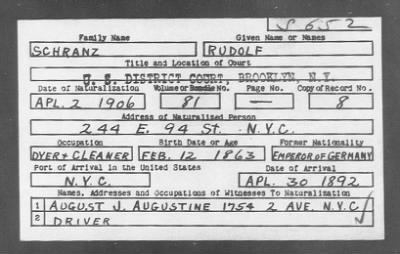 S 652
Family Name Given Name or Names
SCHRANZ RUDOLF
Title and Location of Court
U. S. DISTRICT COURT, BROOKLYN, N.Y.
Date of Naturalization Volume or Bundle No. Page No. Copy of Record No.
APL. 2 1906 81 — 8
Address of Naturalized Person
244 E. 94 ST. N.Y.C.
Occupation Birth Date or Age Former Nationality
DYER & CLEANER FEB. 12 1863 EMPEROR OF GERMANY
Port of Arrival in the United States Date of Arrival
N.Y.C. APL. 30 1892
Names, Addresses and Occupations of Witnesses To Naturalization
1 AUGUST J. AUGUSTINE 1754 2 AVE. N.Y.C
2 DRIVER